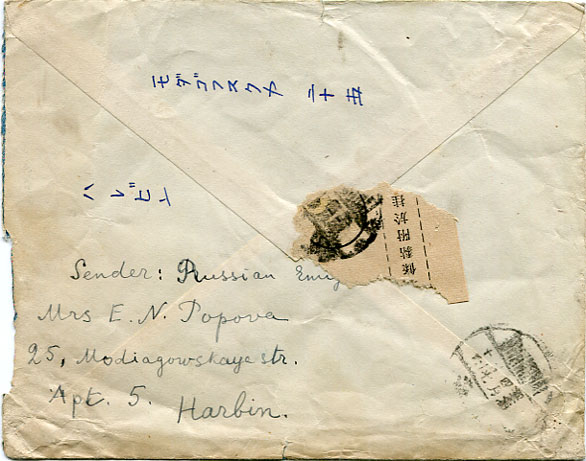 モダゴフスクヤ 二十五
條黏附於挂
Sender: Russian Emig
Mrs E. N. Popova
25, Modiagowskaye str.
Apt. 5. Harbin.